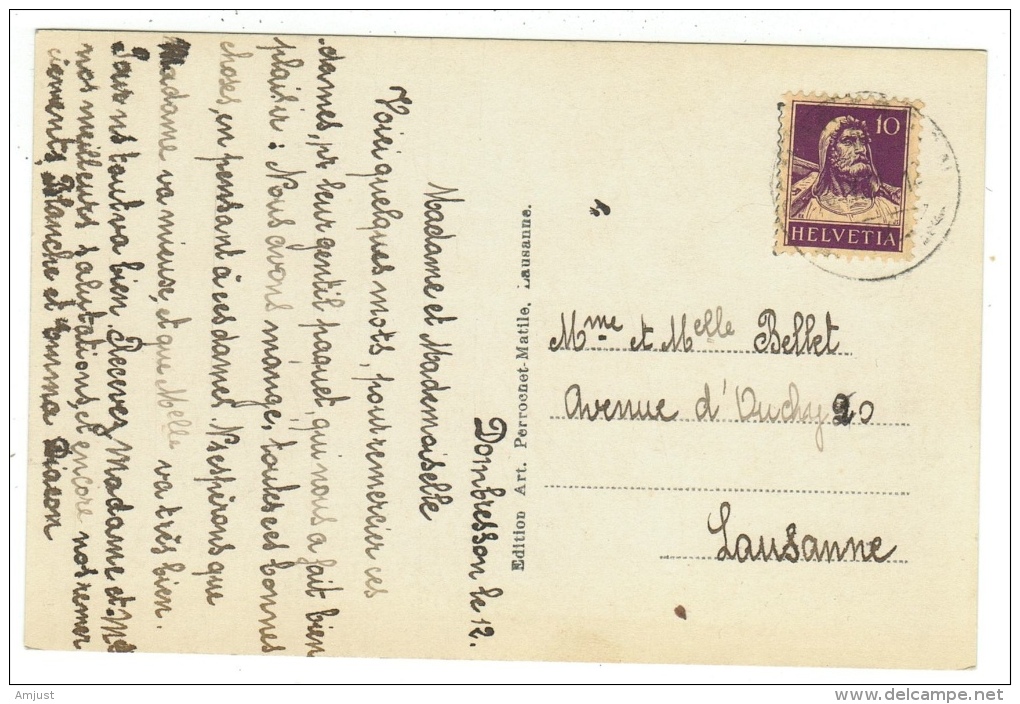 Dombresson le 12.
Madame et Mademoiselle
Voici quelques mots, pour remercier ces
dames, pr leur gentil paquet, qui nous a fait bien
plaisir : Nous avons mangé, toutes ces bonnes
choses, en pensant à ces dames. N. espérons que
Madame va mieuse, et que Melle va très bien.
Pour ns tout va bien. Recevez Madame et Mlle
nos meilleurs salutations, et encore nos remer
ciements, Blanche et Emma Diacon
Edition Art. Perrochet-Matile, Lausanne.
10
HELVETIA
Mme et Melle Bellet
Avenue d'Ouchy 20
Lausanne
Amjust
delcampe.net